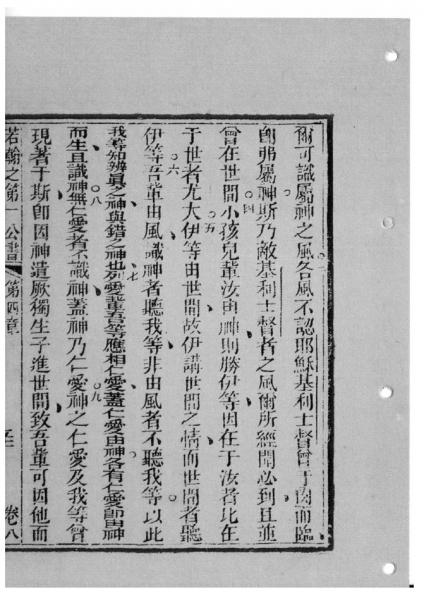 爾可識屬神之風各風不認耶穌基利士督曾于肉而臨
卽弗屬神斯乃敵基利士督者之風爾所經聞必到且並
曾在世間小孩兒輩汝由神則勝伊等因在于汝者比在
于世者尤大伊等由世間故伊講世間之情而世間者聽
伊等吾輩由風識神者聽我等非由風者不聽我等以此
我等知辨眞之神與錯之神也列愛輩吾等應相仁愛蓋仁愛由神各有仁愛卽由神
而生且識神無仁愛者不識神蓋神乃仁愛神之仁愛及我等曾
現著于斯卽因神遣厥獨生子進世間致吾輩可因他而
若翰之第一公書 第四章 卷八